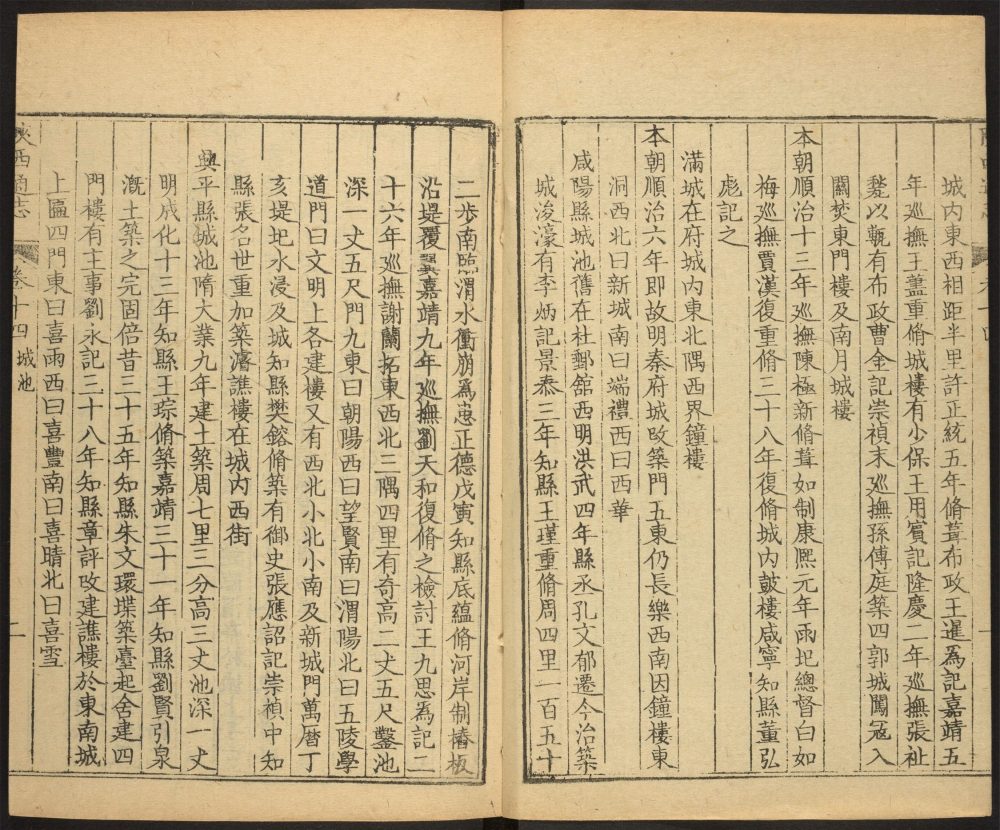 城內東西相距半里許正統五年脩葺布政王暹為記嘉靖五
年巡撫王藎重脩城樓有少保王用賓記隆慶二年巡撫張祉
甃以甎有布政曹金記崇禎末巡撫孫傳庭築四郭城闖冦入
關焚東門樓及南月城樓
本朝順治十三年巡撫陳極新脩葺如制康熙元年雨圯總督白如
梅巡撫賈漢復重脩三十八年復脩城內鼓樓咸寧知縣董弘
彪記之
滿城在府城內東北隅西界鐘樓
本朝順治六年即故明秦府城改築門五東仍長樂西南因鐘樓東
洞西北曰新城南曰端禮西曰西華
咸陽縣城池舊在杜郵舘西明洪武四年縣丞孔文郁遷今治築
城浚濠有李炳記景泰三年知縣王瑾重脩周四里一百五十
二步南臨渭水衝崩為患正德戊寅知縣底蘊脩河岸制樁板
沿堤覆翼嘉靖九年巡撫劉天和復脩之檢討王九思為記二
十六年巡撫謝蘭拓東西北三隅四里有奇高二丈五尺鑿池
深一丈五尺門九東曰朝陽西曰望賢南曰渭陽北曰五陵學
道門曰文明上各建樓又有西北小北小南及新城門萬曆丁
亥堤圯水浸及城知縣樊鎔脩築有御史張應詔記崇楨中知
縣張名世重加築濬譙樓在城內西街
興平縣城池隋大業九年建土築周七里三分高三丈池深一丈
明成化十三年知縣王琮脩築嘉靖三十一年知縣劉賢引泉
溉土築之完固倍昔三十五年知縣朱文環堞築臺起舍建四
門樓有主事劉永記三十八年知縣章評改建譙樓於東南城
上匾四門東曰喜雨西曰喜豐南曰喜晴北曰喜雪
陝西通志 卷十四 城池 二